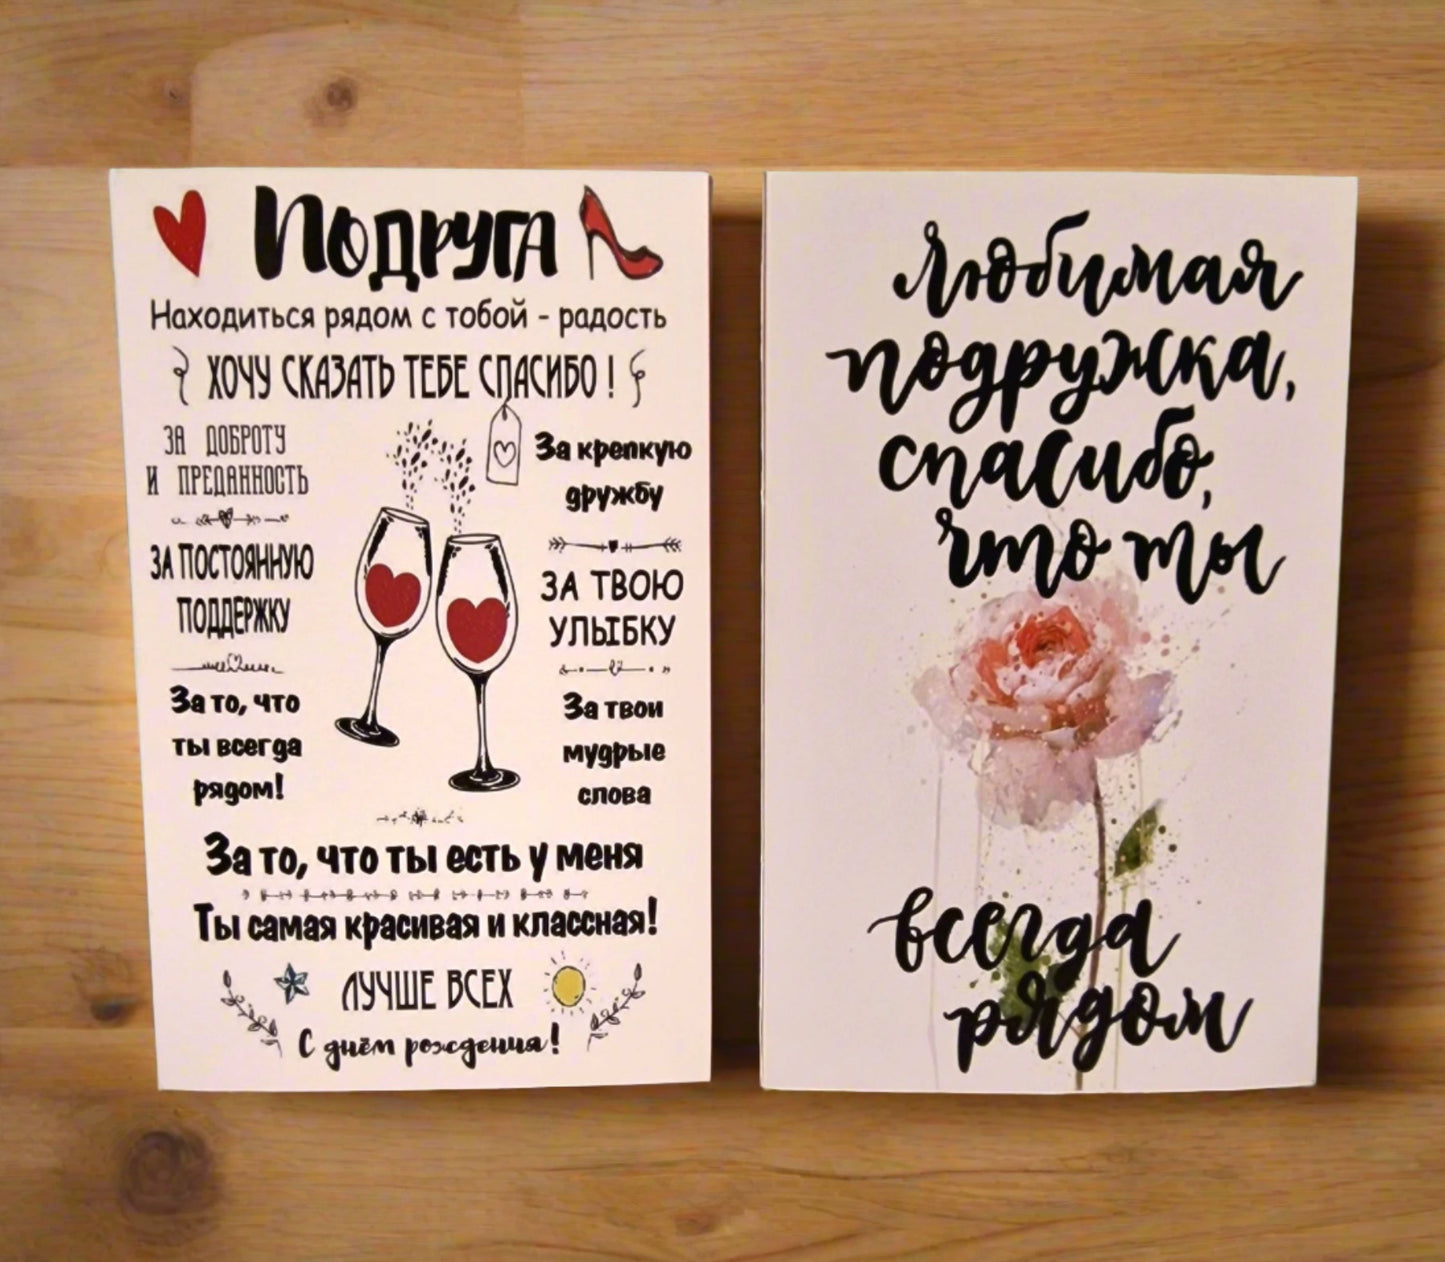 Подруга
Находиться рядом с тобой - радость
ХОЧУ СКАЗАТЬ ТЕБЕ СПАСИБО !
ЗА ДОБРОТУ
И ПРЕДАННОСТЬ
ЗА ПОСТОЯННУЮ
ПОДДЕРЖКУ
За то, что
ты всегда
рядом!
За крепкую
дружбу
ЗА ТВОЮ
УЛЫБКУ
За твои
мудрые
слова
За то, что ты есть у меня
Ты самая красивая и классная!
ЛУЧШЕ ВСЕХ
С днём рождения!
любимая
подружка,
спасибо,
что ты
всегда
рядом